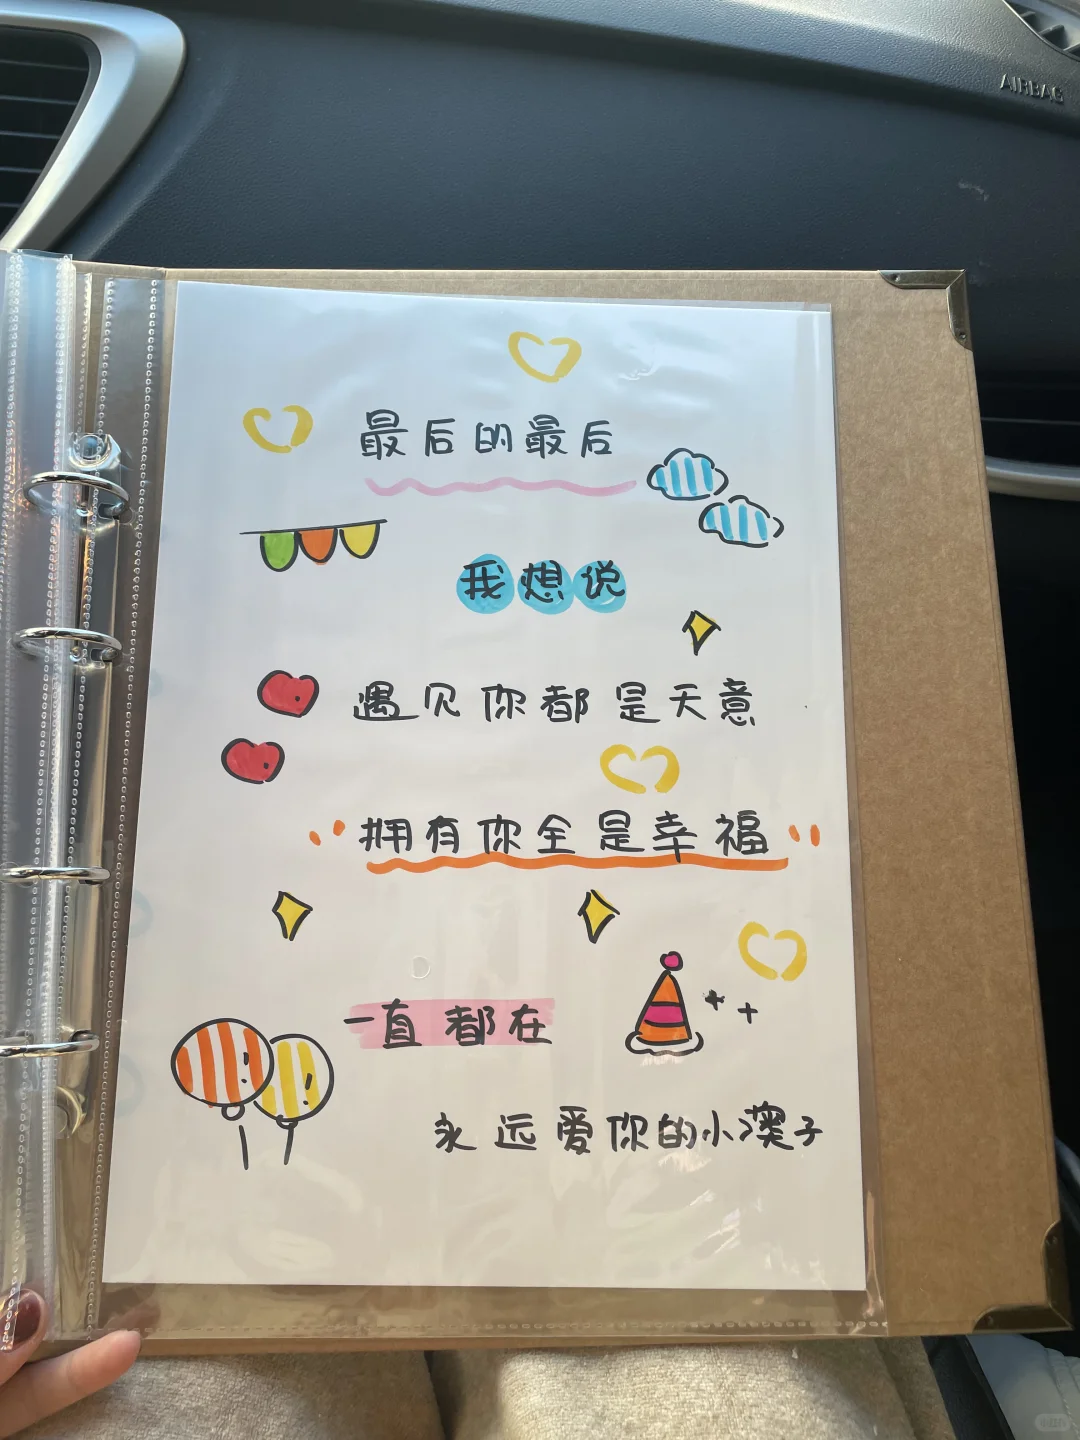 AIRBAG
最后的最后
我想说
遇见你都是天意
拥有你全是幸福
一直都在
永远爱你的小澳子